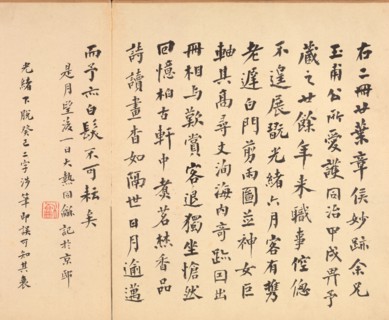 右二冊廿葉章侯妙跡余兄
玉甫公所愛護同治甲戌畀予
藏之廿餘年来職事倥偬
不遑展玩光緒六月客有攜
老遲白門剪雨圖並神女巨
軸其高尋丈洵海内奇跡因出
冊相与歎賞客退獨坐愴然
回憶柏古軒中煑茗爇香品
詩讀畫杳如隔世日月逾邁
而予亦白鬚不可耘矣
是月望後一日大熱同龢記於京邸
光緒下脫癸巳二字涉筆即誤可知其衰